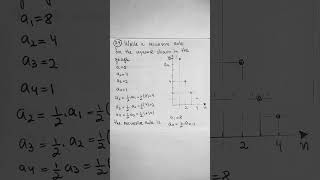 a₁ = 8
a₂ = 4
a₃ = 2
a₄ = 1
a₂ = ½ · a₁ = ½(
a₃ = ½ · a₂ = ½
a₄ = ½ · a₃ =
Write a recursive rule
for the sequence shown in the
graph
a₁=8
a₂=4
a₃=2
a₄=1
a₂ = ½ · a₁ = ½(8) = 4
a₃ = ½ · a₂ = ½(4) = 2
a₄ = ½ · a₃ = ½(2) = 1
the recursive rule is
a₁=8
2
4
n
2
4
n